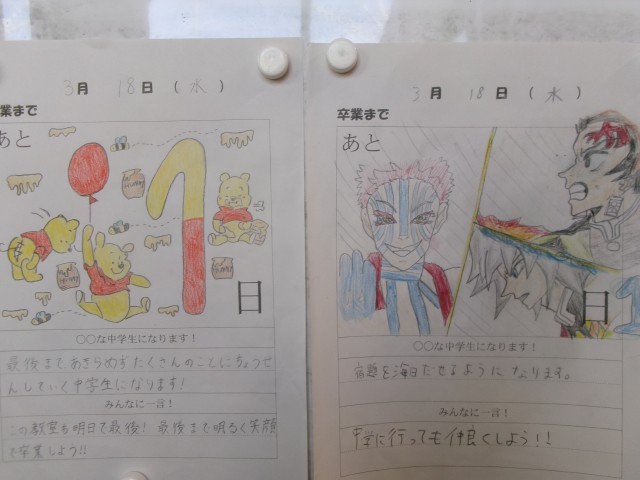 3月 18日（水）
卒業まで
あと
1
日
○○な中学生になります！
最後まであきらめずたくさんのことにちょうせ
んしていく中学生になります！
みんなに一言！
この教室も明日で最後！最後まで明るく笑顔
で卒業しよう!!
3月 18日（水）
卒業まで
あと
日
○○な中学生になります！
宿題を毎日だせるようになります。
みんなに一言！
中学に行っても仲良くしよう！！